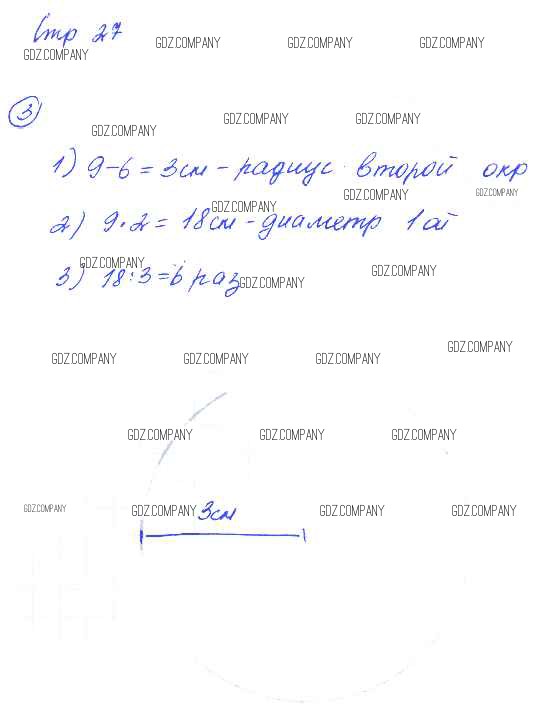 Стр 27
GDZ.COMPANY GDZ.COMPANY GDZ.COMPANY GDZ.COMPANY
3
GDZ.COMPANY GDZ.COMPANY GDZ.COMPANY
1) 9-6=3см - радиус второй окр
GDZ.COMPANY GDZ.COMPANY GDZ.COMPANY
2) 9·2=18см - диаметр 1ой
GDZ.COMPANY GDZ.COMPANY GDZ.COMPANY
3) 18:3=6 раз
GDZ.COMPANY GDZ.COMPANY GDZ.COMPANY GDZ.COMPANY
GDZ.COMPANY GDZ.COMPANY GDZ.COMPANY
GDZ.COMPANY GDZ.COMPANY 3см GDZ.COMPANY GDZ.COMPANY